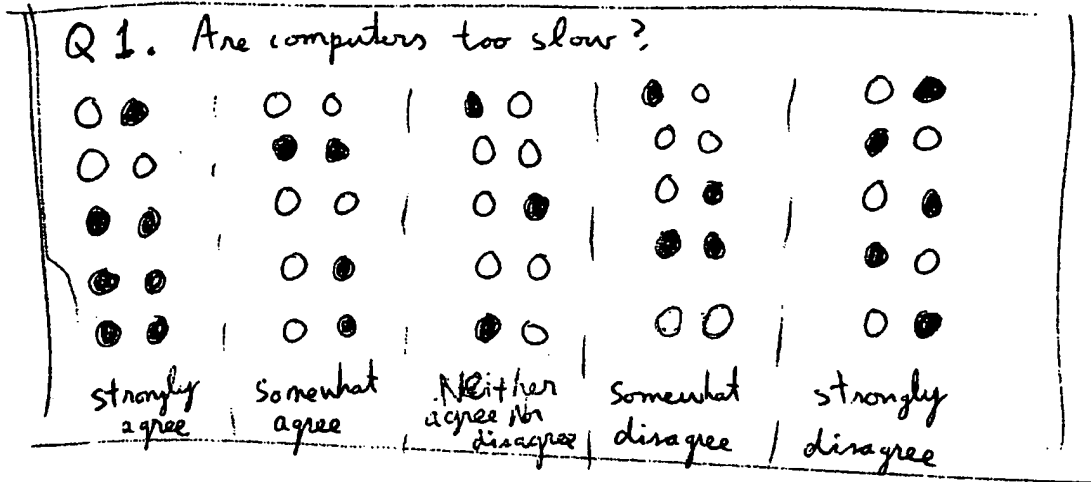 Q 1. Are computers too slow?
strongly
agree
somewhat
agree
Neither
agree Nor
disagree
somewhat
disagree
strongly
disagree